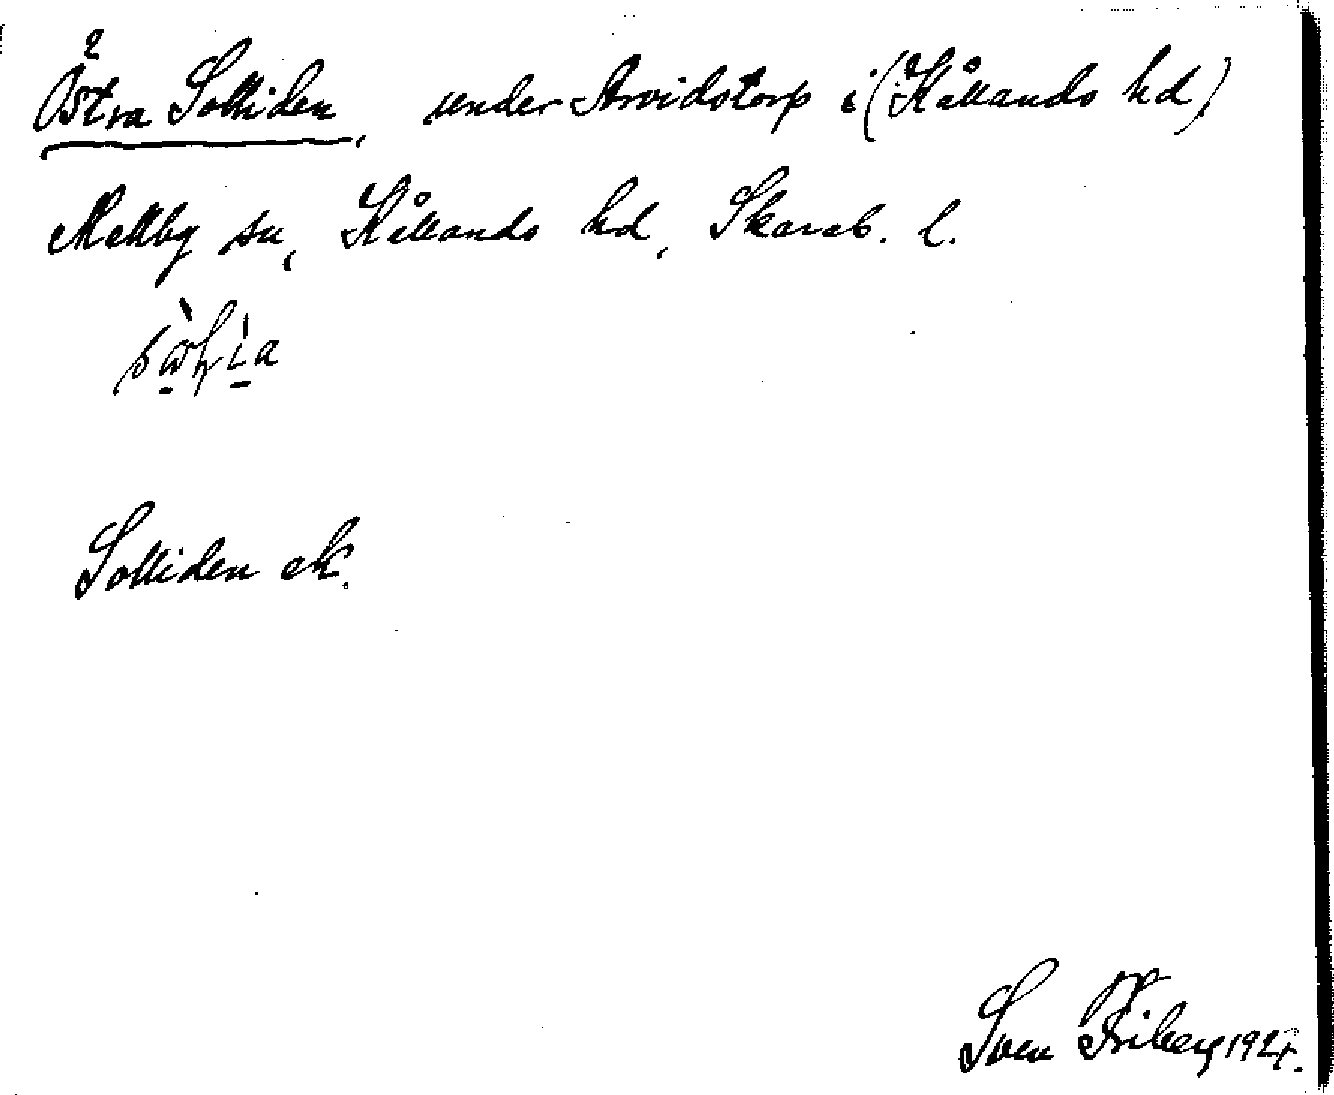 2
Östra Solliden, under Arvidstorp i (Kållands hd)
Mellby sn, Kållands hd, Skarab. l.
Solliden ek.
Sven Friberg 1924.